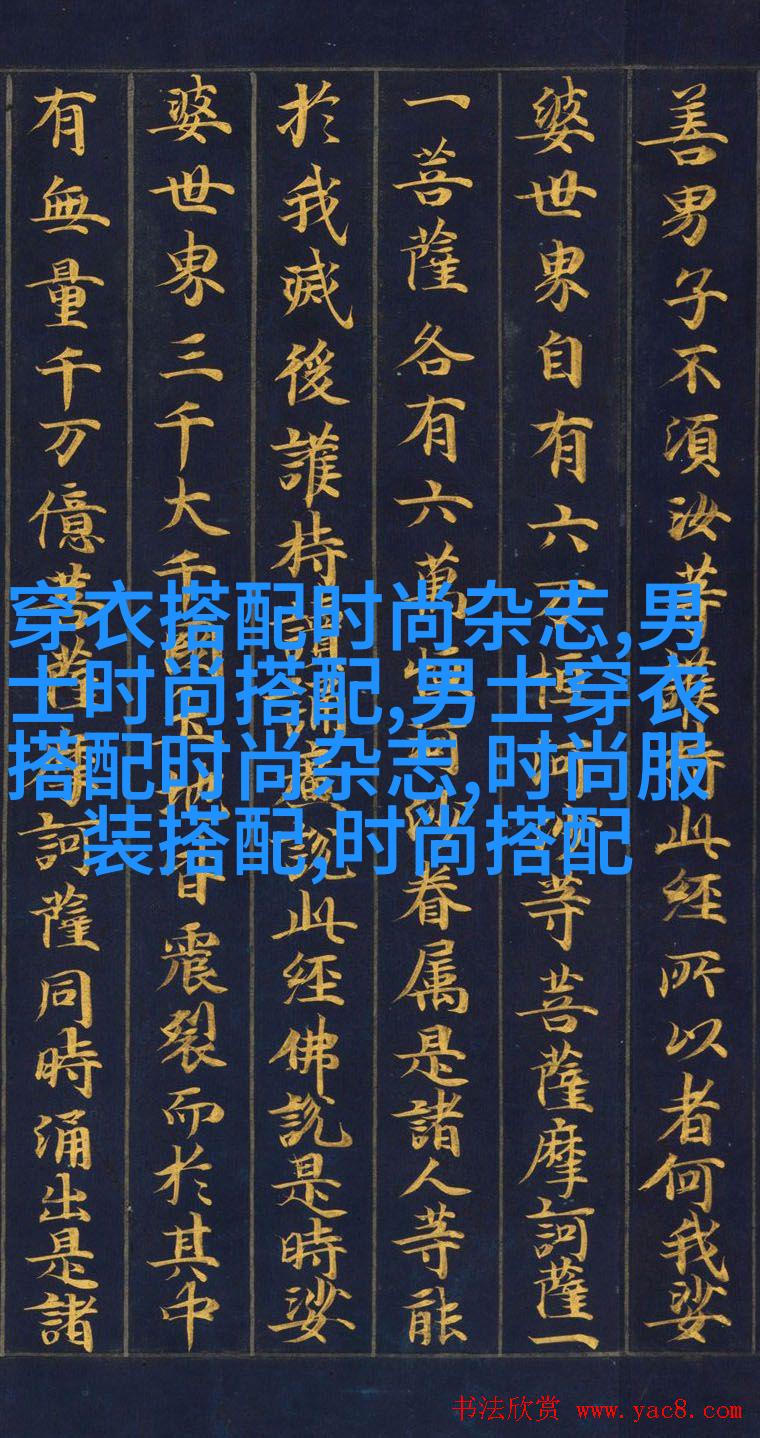 善男子不須汝等護持此經所以者何我娑
婆世界自有六万恒河沙等菩薩摩訶薩一
一菩薩各有六萬恒河沙眷属是諸人等能
於我滅後護持讀誦廣説此經佛説是時娑
婆世界三千大千國土地皆震裂而於其中
有無量千万億菩薩摩訶薩同時涌出是諸
穿衣搭配时尚杂志,男
士时尚搭配,男士穿衣
搭配时尚杂志,时尚服
装搭配,时尚搭配
书法欣赏 www.yac8.com